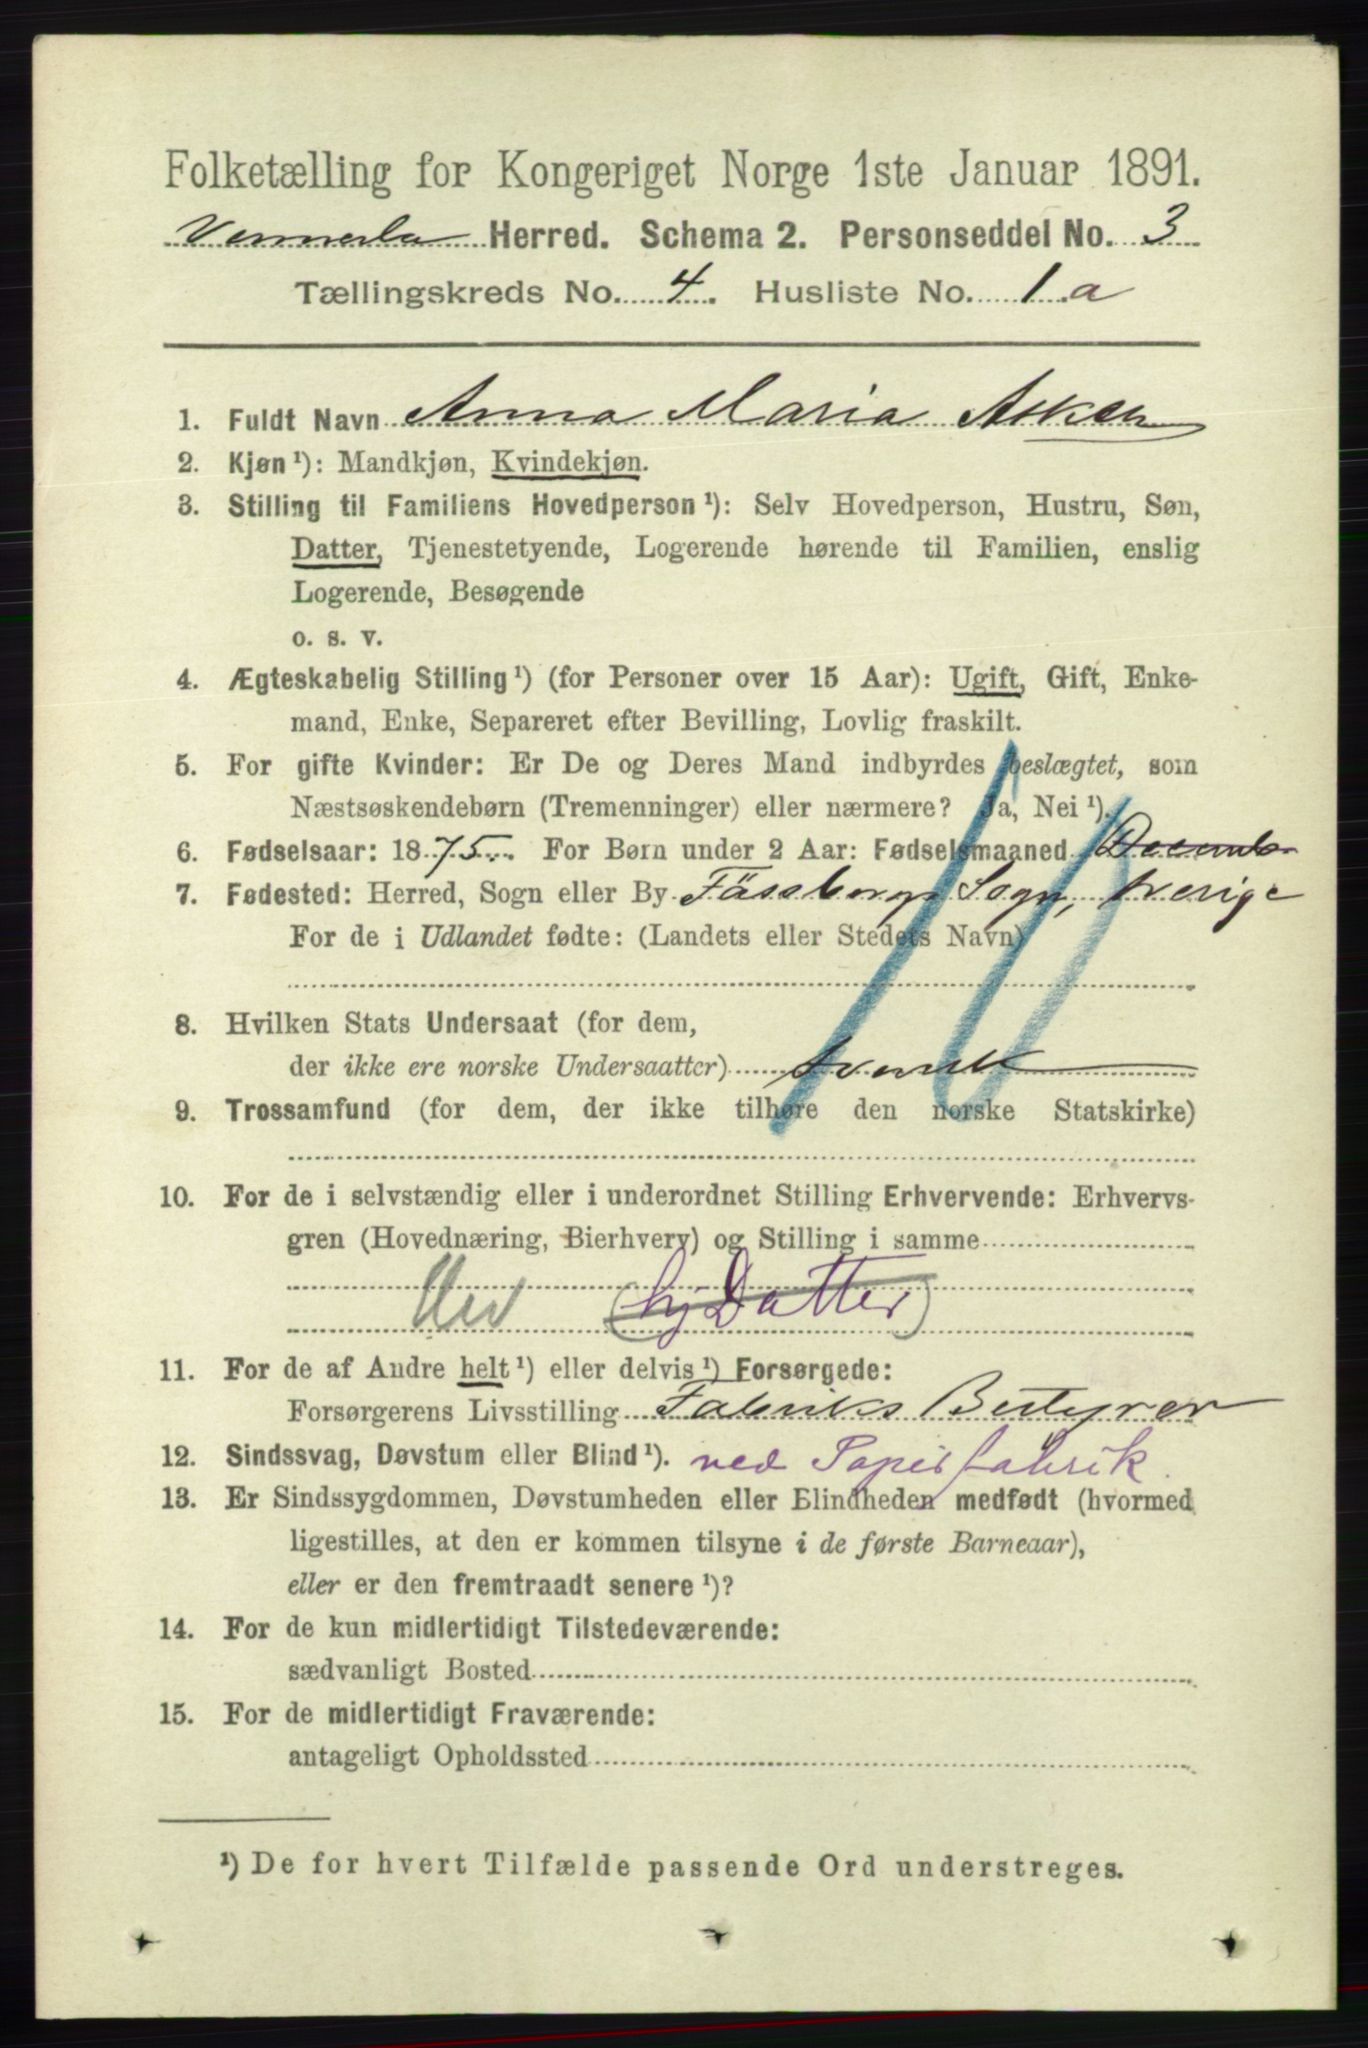 Folketælling for Kongeriget Norge 1ste Januar 1891.
Vennesla Herred. Schema 2. Personseddel No. 3
Tællingskreds No. 4. Husliste No. 1 a
1. Fuldt Navn Anna Maria Asker
2. Kjøn ¹): Mandkjøn, Kvindekjøn.
3. Stilling til Familiens Hovedperson ¹): Selv Hovedperson, Hustru, Søn,
Datter, Tjenestetyende, Logerende hørende til Familien, enslig
Logerende, Besøgende
o. s. v.
4. Ægteskabelig Stilling ¹) (for Personer over 15 Aar): Ugift, Gift, Enke-
mand, Enke, Separeret efter Bevilling, Lovlig fraskilt.
5. For gifte Kvinder: Er De og Deres Mand indbyrdes beslægtet, som
Næstsøskendebørn (Tremenninger) eller nærmere? Ja, Nei ¹).
6. Fødselsaar: 1875. For Børn under 2 Aar: Fødselsmaaned Decemb.
7. Fødested: Herred, Sogn eller By Fässbergs Sogn, Sverige
For de i Udlandet fødte: (Landets eller Stedets Navn)
8. Hvilken Stats Undersaat (for dem,
der ikke ere norske Undersaatter) Svensk
9. Trossamfund (for dem, der ikke tilhøre den norske Statskirke)
10. For de i selvstændig eller i underordnet Stilling Erhvervende: Erhvervs-
gren (Hovednæring, Bierhverv) og Stilling i samme
(hj Datter)
11. For de af Andre helt ¹) eller delvis ¹) Forsørgede:
Forsørgerens Livsstilling Fabriks Bestyrer
12. Sindssvag, Døvstum eller Blind ¹). ved Papirfabrik.
13. Er Sindssygdommen, Døvstumheden eller Blindheden medfødt (hvormed
ligestilles, at den er kommen tilsyne i de første Barneaar),
eller er den fremtraadt senere ¹)?
14. For de kun midlertidigt Tilstedeværende:
sædvanligt Bosted
15. For de midlertidigt Fraværende:
antageligt Opholdssted
¹) De for hvert Tilfælde passende Ord understreges.